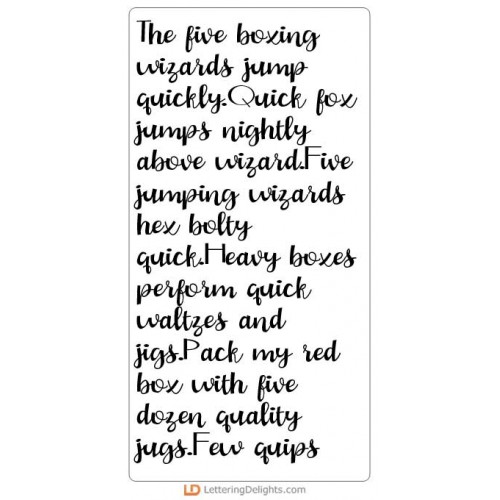 The five boxing
wizards jump
quickly.Quick fox
jumps nightly
above wizard.Five
jumping wizards
hex bolty
quick.Heavy boxes
perform quick
waltzes and
jigs.Pack my red
box with five
dozen quality
jugs.Few quips
LD LetteringDelights.com